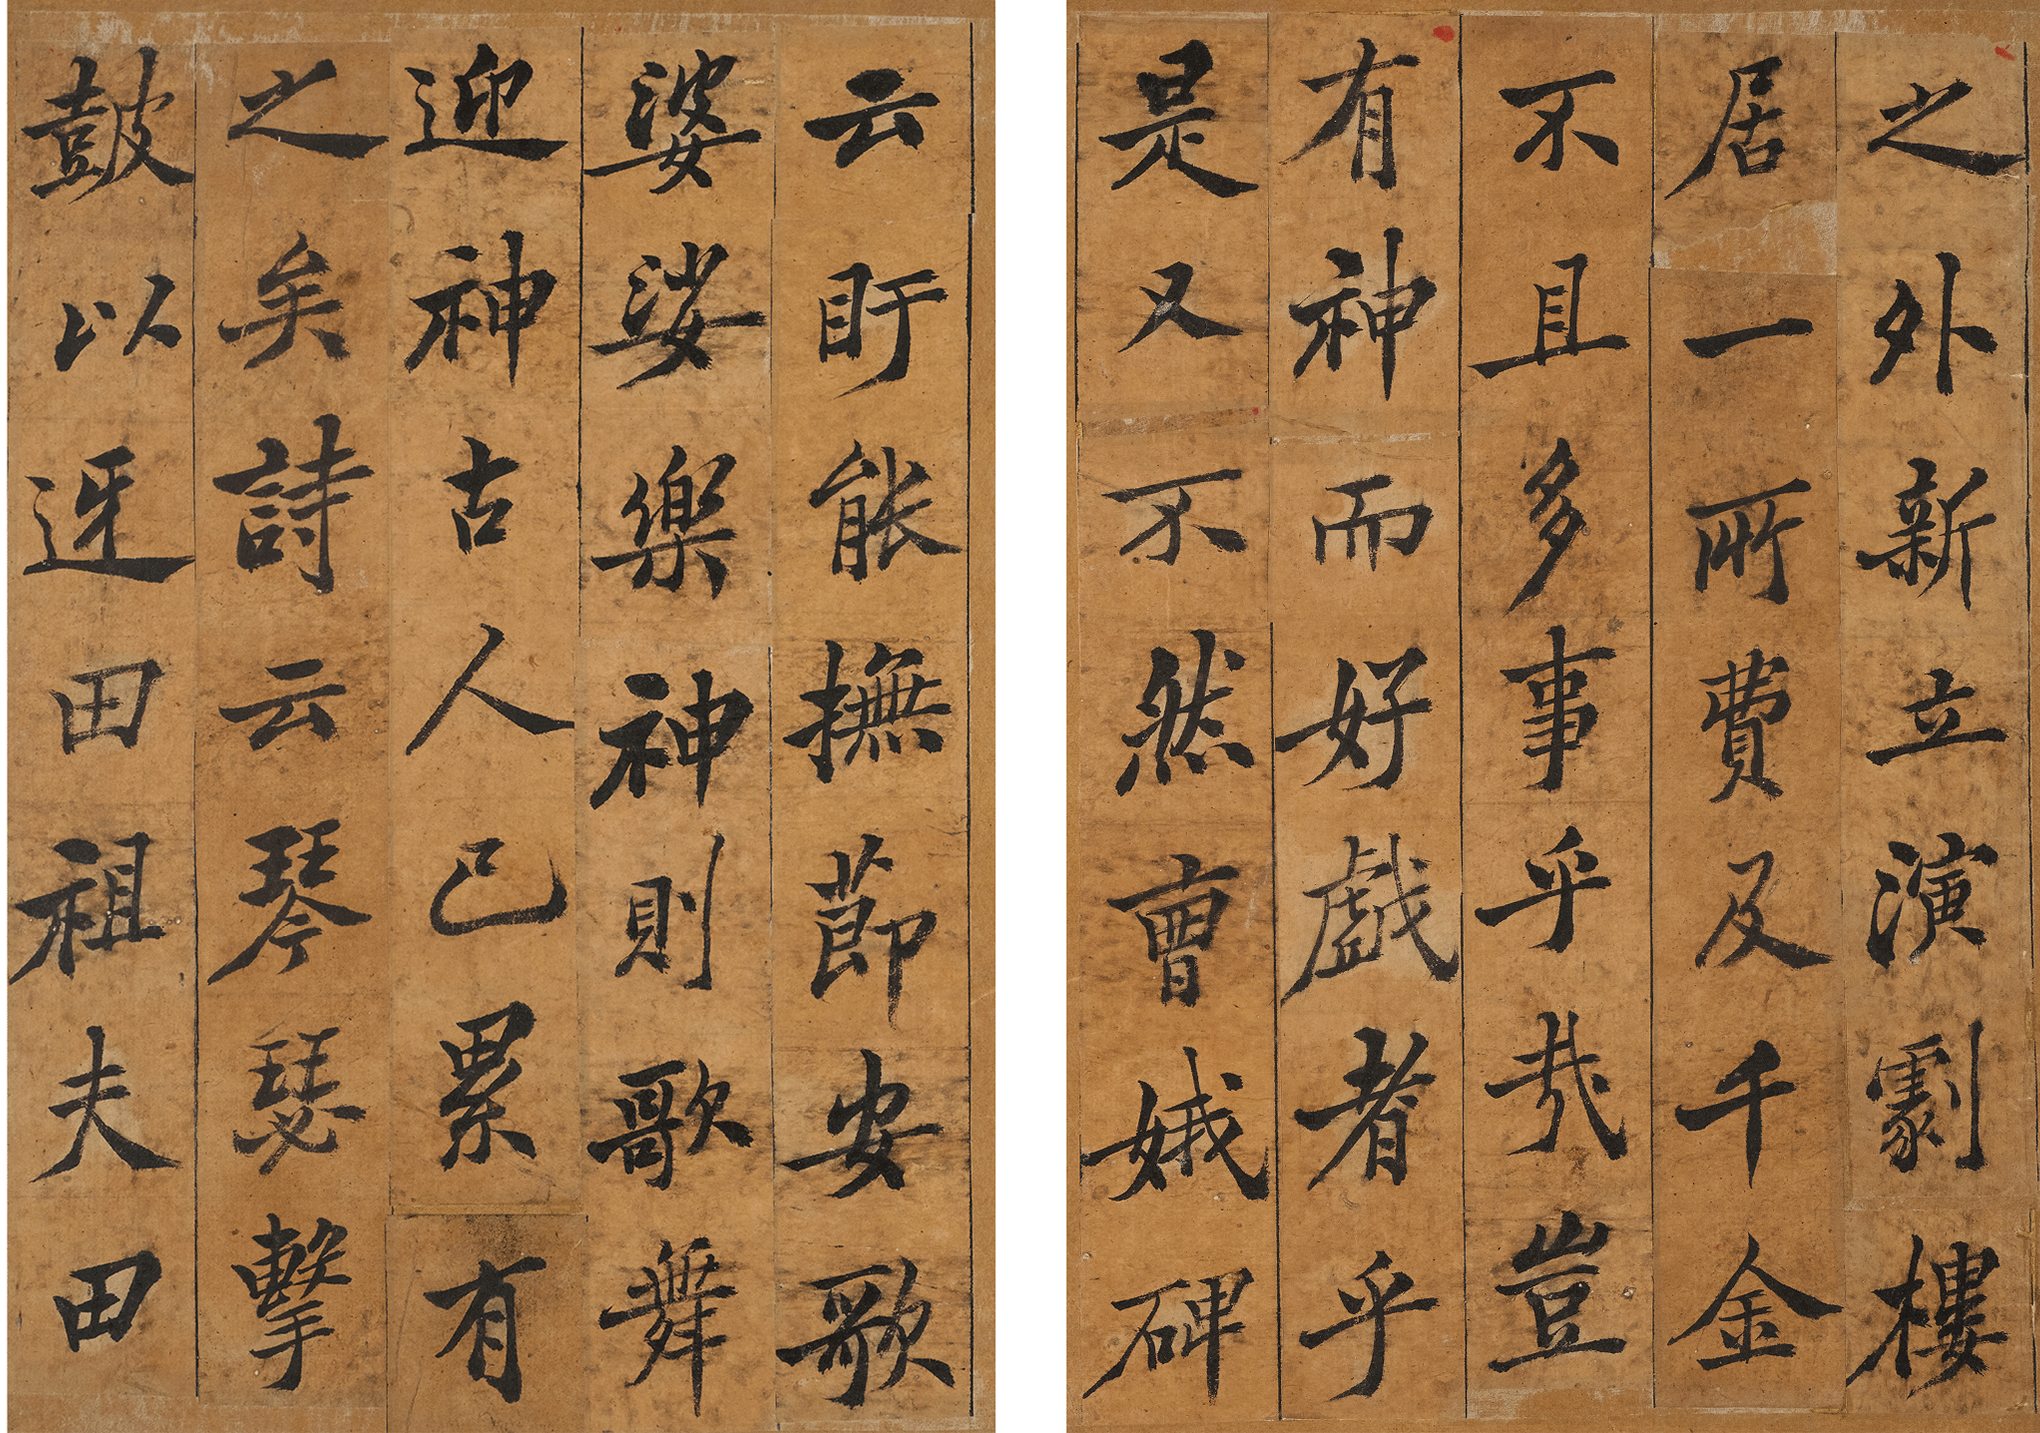 之外新立演劇樓
居一所費及千金
不且多事乎哉豈
有神而好戲者乎
是又不然曹娥碑
云盱能撫節安歌
婆娑樂神則歌舞
迎神古人已累有
之矣詩云琴瑟擊
鼓以迓田祖夫田